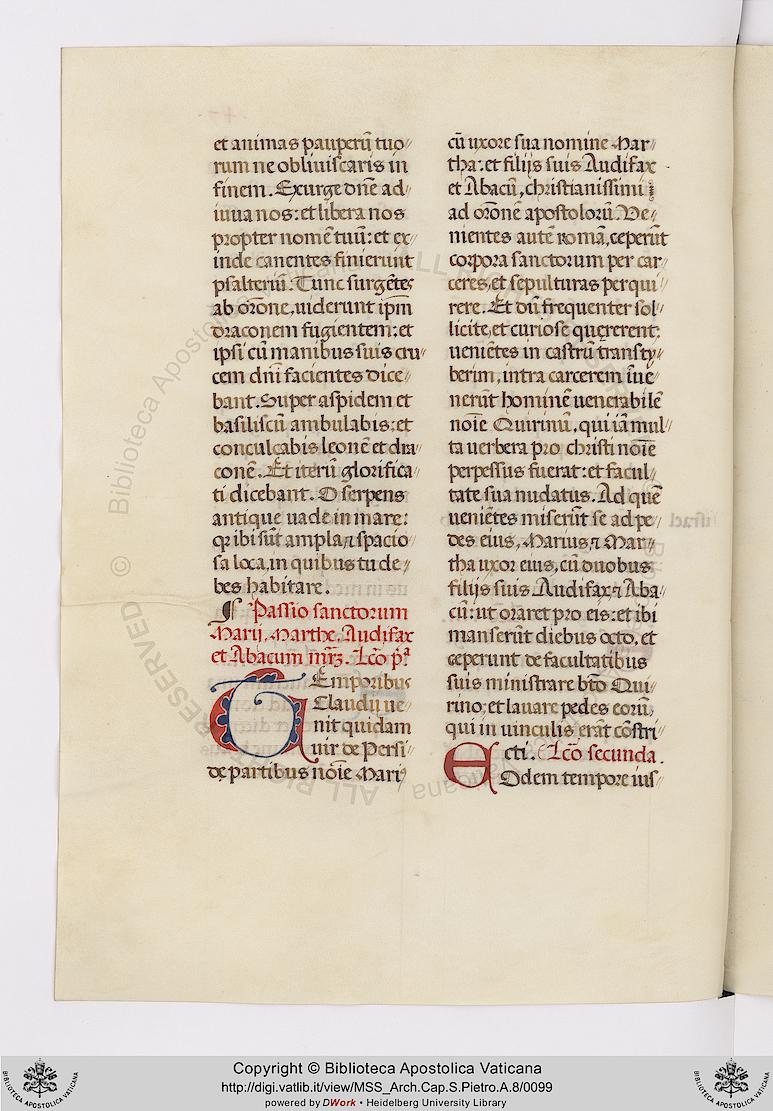 et animas pauperū tuo
rum ne obliuiscaris in
finem. Exurge dn̄e ad
iuua nos: et libera nos
propter nomē tuū: et ex
inde canentes finierunt
psalteriū. Tunc surgētes
ab orōne, uiderunt ipm̄
draconem fugientem: et
ipsi cū manibus suis cru
cem dn̄i facientes dice
bant. Super aspidem et
basiliscū ambulabis: et
conculcabis leonē et dra
conē. Et iterū glorifica
ti dicebant. O serpens
antique uade in mare:
qꝛ ibi sūt ampla ⁊ spacio
sa loca, in quibus tu de
bes habitare.
Passio sanctorum
Marij, Marthe, Audifax
et Abacum mr̄ꝝ. Lcō pᵃ
TEmporibus
Claudij ue
nit quidam
uir de Persi
de partibus noīe Mariꝰ
cū uxore sua nomine Mar
tha: et filijs suis Audifax
et Abacū, christianissimi
ad orōnē apostolorū. Ve
nientes autē romā, ceperūt
corpora sanctorum per car
ceres, et sepulturas perqui
rere. Et dū frequenter sol
licite, et curiose quęrerent:
ueniētes in castrū transty
berim, intra carcerem īue
nerūt hominē uenerabilē
noīe Quirinū, qui iā mul
ta uerbera pro christi noīe
perpessus fuerat: et facul
tate sua nudatus. Ad quē
ueniētes miserūt se ad pe
des eius, Marius ⁊ Mar
tha uxor eius, cū duobus
filijs suis Audifax ⁊ Aba
cū: ut oraret pro eis: et ibi
manserūt diebus octo, et
ceperunt de facultatibus
suis ministrare bt̄o Qui
rino: et lauare pedes eorū,
qui in uinculis erāt cōstri
cti. Lcō secunda.
EOdem tempore ius
© Biblioteca Apostolica Vaticana ALL RIGHTS RESERVED
Copyright © Biblioteca Apostolica Vaticana
http://digi.vatlib.it/view/MSS_Arch.Cap.S.Pietro.A.8/0099
powered by DWork • Heidelberg University Library
BIBLIOTECA APOSTOLICA VATICANA
BIBLIOTECA APOSTOLICA VATICANA